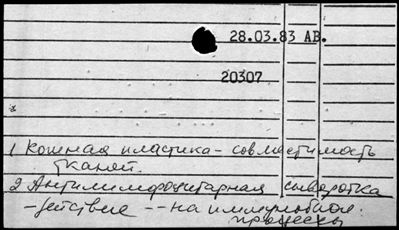 28.03.83 АВ.
20307
1 Кожная пластика - совместимость
тканей.
2 Антилимфоцитарная сыворотка
- действие -- на иммунобиол.
процессы